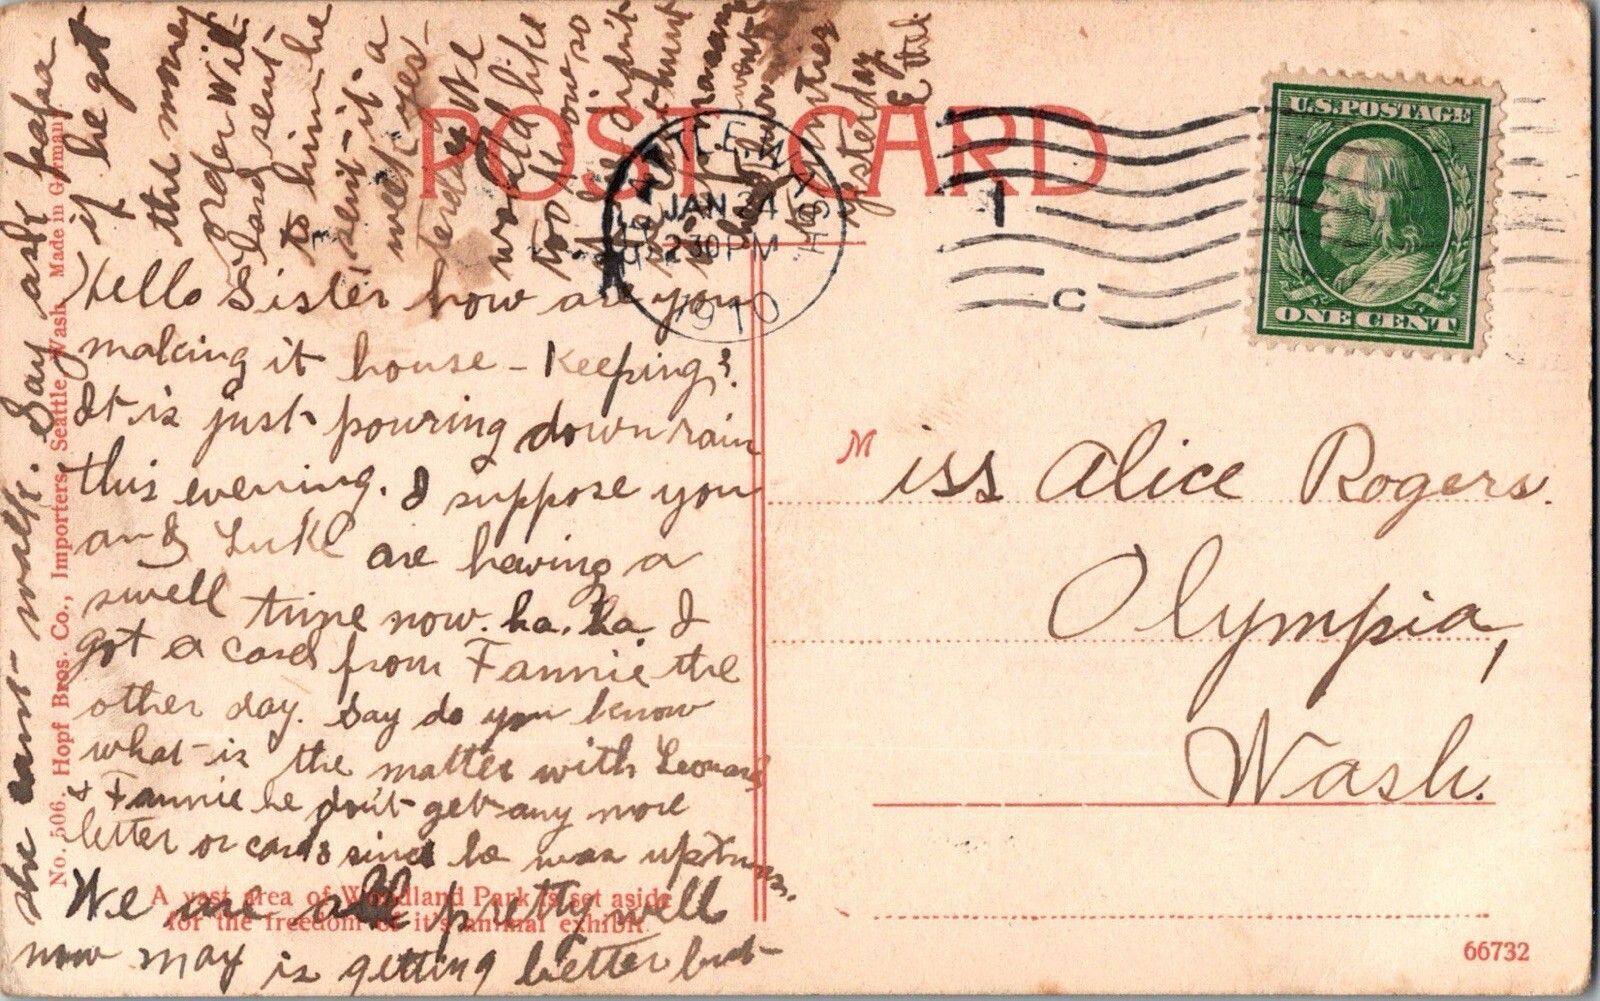 POST CARD
Hello Sister how are you
making it house-keeping?
It is just pouring down rain
this evening. I suppose you
and Luke are having a
swell time now. ha. ha. I
got a card from Fannie the
other day. Say do you know
what is the matter with Leonard
& Fannie he don't get any more
letter or cards since he was up
We are all pretty well
now may is getting better but
she cant walk. Say ask papa
if he got
the money
order Will
sent
to him he
sent it a
week yes-
terday We
would like
to know so
if he didn't
yesterday
Ethel
SEATTLE, WASH.
JAN 24
230 PM
1910
1
C
U.S. POSTAGE
ONE CENT
Miss Alice Rogers.
Olympia,
Wash.
No. 506, Hopf Bros. Co., Importers, Seattle Wash. Made in Germany
A vast area of Woodland Park is set aside
for the freedom of it's animal exhibit
66732